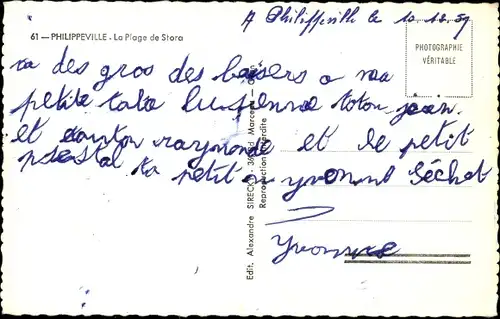 A Philippeville le 10.12.59
61 — PHILIPPEVILLE - La Plage de Stora
PHOTOGRAPHIE
VÉRITABLE
des gros des baisers a ma
petite tata Lusienne toton jean
et tonton raymonde et le petit
ta petit yvonne Séchet
Yvonne
Edit. Alexandre SIRECKY
Reproduction interdite